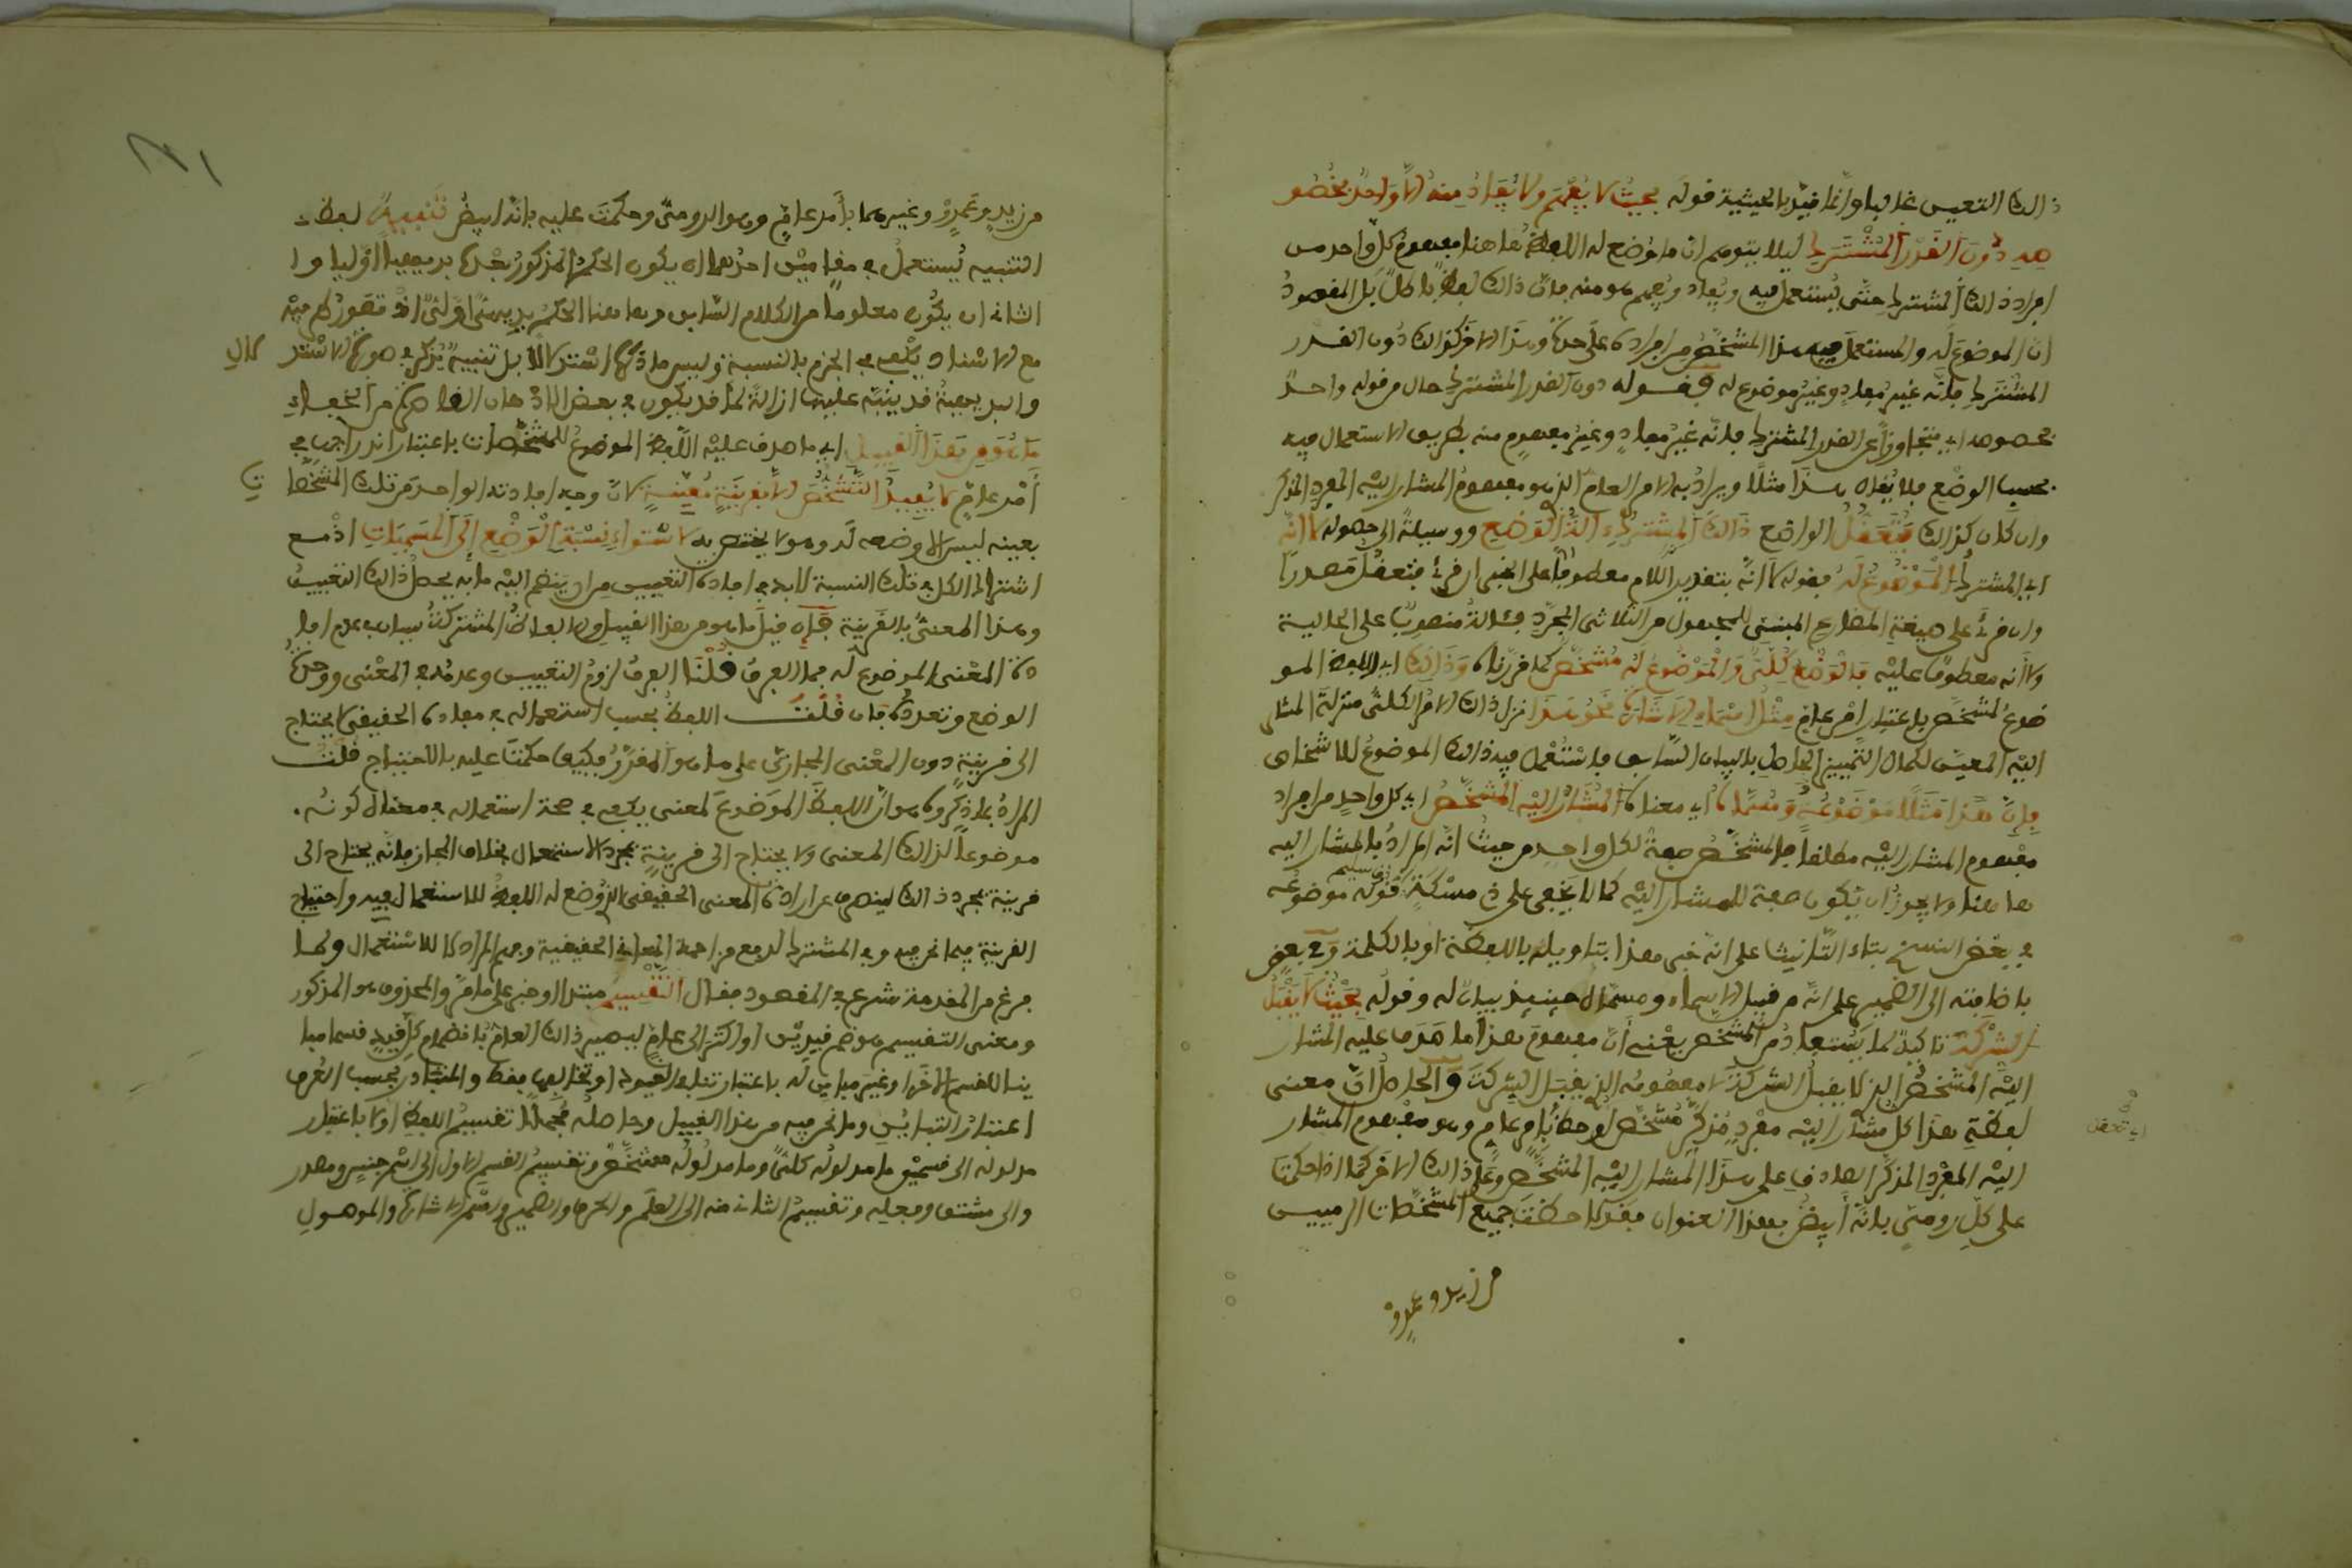 ذالك التعيين غالبا وانما قيد بالحيثية قوله بحيث لا يفهم ولا يفاد منه الا واحد بخصو
صه دون القدر المشترك ليلا يتوهم ان ما وضع له اللفظ هاهنا مفهوم كل واحد من
افراد ذالك المشترك حتى يستعمل فيه ويفاد ويفهم هو منه فان ذالك باطل بل المقصود
ان الموضوع له والمستعمل فيه هذا المشخص من افراده على حدة وهذا الاخر كذالك دون القدر
المشترك فانه غير مفاد وغير موضوع له فقوله دون القدر المشترك حال من قوله واحد
بخصوصه اي متجاوزا عن القدر المشترك فانه غير مفاد وغير مفهوم منه بطريق الاستعمال فيه
بحسب الوضع فلا يقال هذا مثلا ويراد به الامر العام الذي هو مفهوم المشار اليه المفرد المذكر
وان كان كذالك فتعقل الواضع ذالك المشترك الة للوضع ووسيلة الى حصوله لا انه
اي المشترك الموضوع له فقوله لا انه بتقدير اللام معطوفا على الخبر ان قرئ فتعقل مصدرا
وان قرئ على صيغة المضارع المبني للمجهول من الثلاثي المجرد فئالة منصوب على الحالية
ولا انه معطوف عليه فالوضع كلي والموضوع له مشخص كما قررناه وذالك اي اللفظ المو
ضوع لمشخص باعتبار امر عام مثل اسماء الاشارة نحو هذا نزل ذالك الامر الكلي منزلة المشار
اليه المعين لكمال التمييز الحاصل بالبيان السابق فاستعمل فيه ذالك الموضوع للاشخاص
فان هذا مثلا موضوعه ومسماه اي معناه المشار اليه المشخص اي كل واحد من افراد
مفهوم المشار اليه مطلقا فالمشخص صفة لكل واحد من حيث انه المراد بالمشار اليه
هاهنا ولا يجوز ان يكون صفة للمشار اليه كما لا يخفى على ذي مسكة قوله موضوعه
في بعض النسخ بتاء التانيث على انه خبر هذا بتاويله باللفظة او بالكلمة وفي بعض
باضافته الى الضمير على انه من قبيل الاسماء ومسماه حينيذ بيان له وقوله بحيث لا يقبل
الشركة تاكيد لما يستفاد من المشخص يعني ان مفهوم هذا ما صدق عليه المشار
اليه المشخص الذي لا يقبل الشركة لا مفهومه الذي يقبل الشركة والحاصل ان معنى
لفظة هذا كل مشار اليه مفرد مذكر مشخص لوحظ بامر عام وهو مفهوم المشار
اليه المفرد المذكر الصادق على هذا المشار اليه المشخص وعلى ذالك الاخر كما اذا حكمت
على كل رومي بانه ابيض بهذا العنوان فقد لاحظت جميع المشخصات الرميين
من زيد وعمرو
من زيد وعمرو وغيرهما بامر عام وهو الرومي وحكمت عليه بانه ابيض تنبيه لفظ
التنبيه يستعمل في مقامين احدهما ان يكون الحكم المذكور بعدها بديهيا اوليا وا
الثاني ان يكون معلوما من الكلام السابق وهاهنا الحكم بديهي اولي اذ تصور طرفيه
مع الاسناد يكفي في الجزم بالنسبة وليس ما ذكر استدلالا بل تنبيه يذكر في صورة الاستد لال
والبديهية قد ينبه عليها ازالة لما قد يكون في بعض الاذهان القاصرة من الخفاء
ما هو من هذا القبيل اي ما صدق عليه اللفظ الموضوع للمشخصات باعتبار اندراجها في
امر عام لا يفيد التشخص الا بقرينة معينة لان وجه افادته الواحد من تلك المشخصا ت
بعينه ليس الا وضعه له وهو لا يختص به لاستواء نسبة الوضع الى المسميات اذ مع
اشتراك الكل في تلك النسبة لا بد في افادة التعيين من امر ينضم اليه ما به يحصل ذالك التعيين
وهذا المعنى بالقرينة فان قيل ما هو من هذا القبيل والالفاظ المشتركة سيان في عدم افا
دة المعنى الموضوع له فما الفرق قلنا الفرق لزوم التعيين وعدمه في المعنى ووحدة
الوضع وتعدده فان قلت اللفظ بحسب استعماله في مفاده الحقيقي لا يحتاج
الى قرينة دون المعنى المجازي على ما هو المقرر فكيف حكمت عليه بالاحتياج قلت
المراد بما ذكروه هو ان اللفظ الموضوع لمعنى يكفي في صحة استعماله في معناه كونه
موضوعا لذالك المعنى ولا يحتاج الى قرينة بمجرد الاستعمال بخلاف المجاز فانه يحتاج الى
قرينة بمجرد ذالك لينصرف عن ارادة المعنى الحقيقي الذي وضع له اللفظ للاستعمال فيه واحتياج
القرينة فيما نحن فيه وفي المشترك لدفع مزاحمة المعاني الحقيقية وفهم المراد لا للاستعمال ولما
فرغ من المقدمة شرع في المقصود فقال التقسيم مبتدا وخبر على ما مر والمحذوف هو المذكور
ومعنى التقسيم هو ضم قيدين او اكثر الى عام ليصير ذالك العام بانضمام كل قيد قسما مبا
ينا للقسم الاخر او غير مباين له باعتبار تنافي القيود او تخالفها فقط والمتبادر بحسب العرف
اعتبار التباين وما نحن فيه من هذا القبيل وحاصله مجملا تقسيم اللفظ اولا باعتبار
مدلوله الى قسمين ما مدلوله كلي وما مدلوله مشخص وتقسيم القسم الاول الى اسم جنس ومصدر
والى مشتق وفعل وتقسيم الثاني منه الى العلم والحرف والضمير واسم الاشارة والموصول